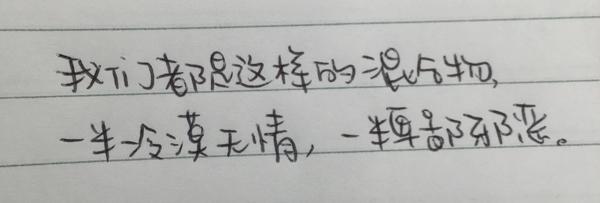 我们都是这样的混合物,
一半冷漠无情，一半卑鄙邪恶。